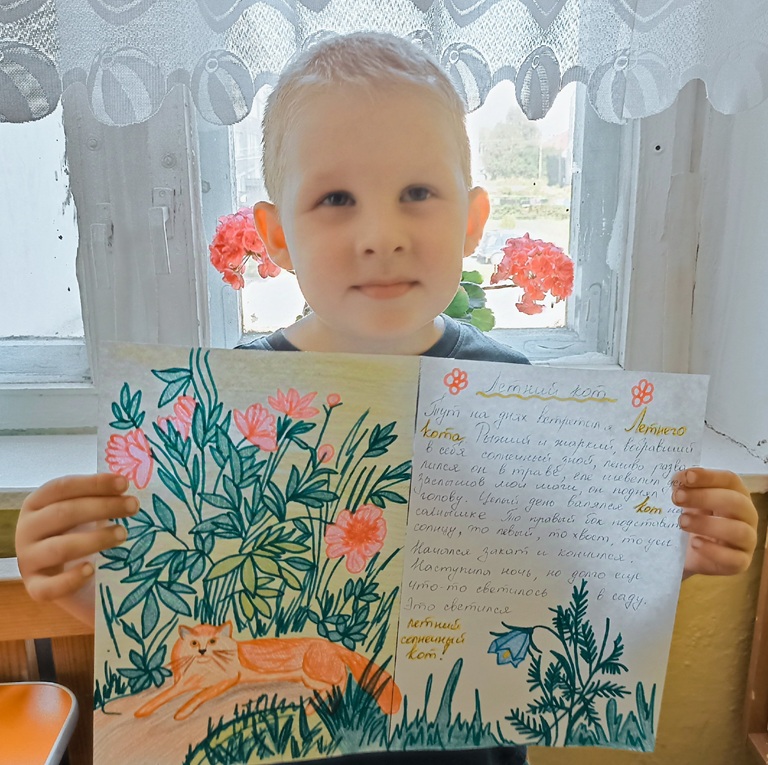 Летний кот
Тут на днях встретил я Летнего
кота. Рыжий и жаркий, вобравший
в себя солнечный зной, лениво разва-
лился он в траве, еле шевелит
Заслышав мои шаги, он поднял
голову. Целый день валялся кот на
солнышке То правый бок подставит
солнцу, то левый, то хвост, то усы
Начался закат и кончился.
Наступила ночь, но долго ещё
что-то светилось в саду.
Это светился
летний
солнечный
кот!